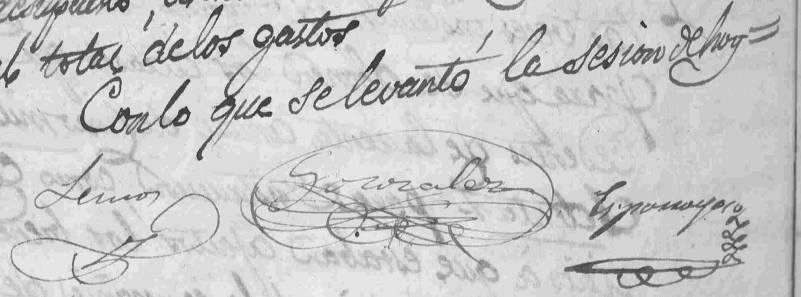 el total de los gastos
Con lo que se levantó la sesion de hoy =
Lemos Gonzalez